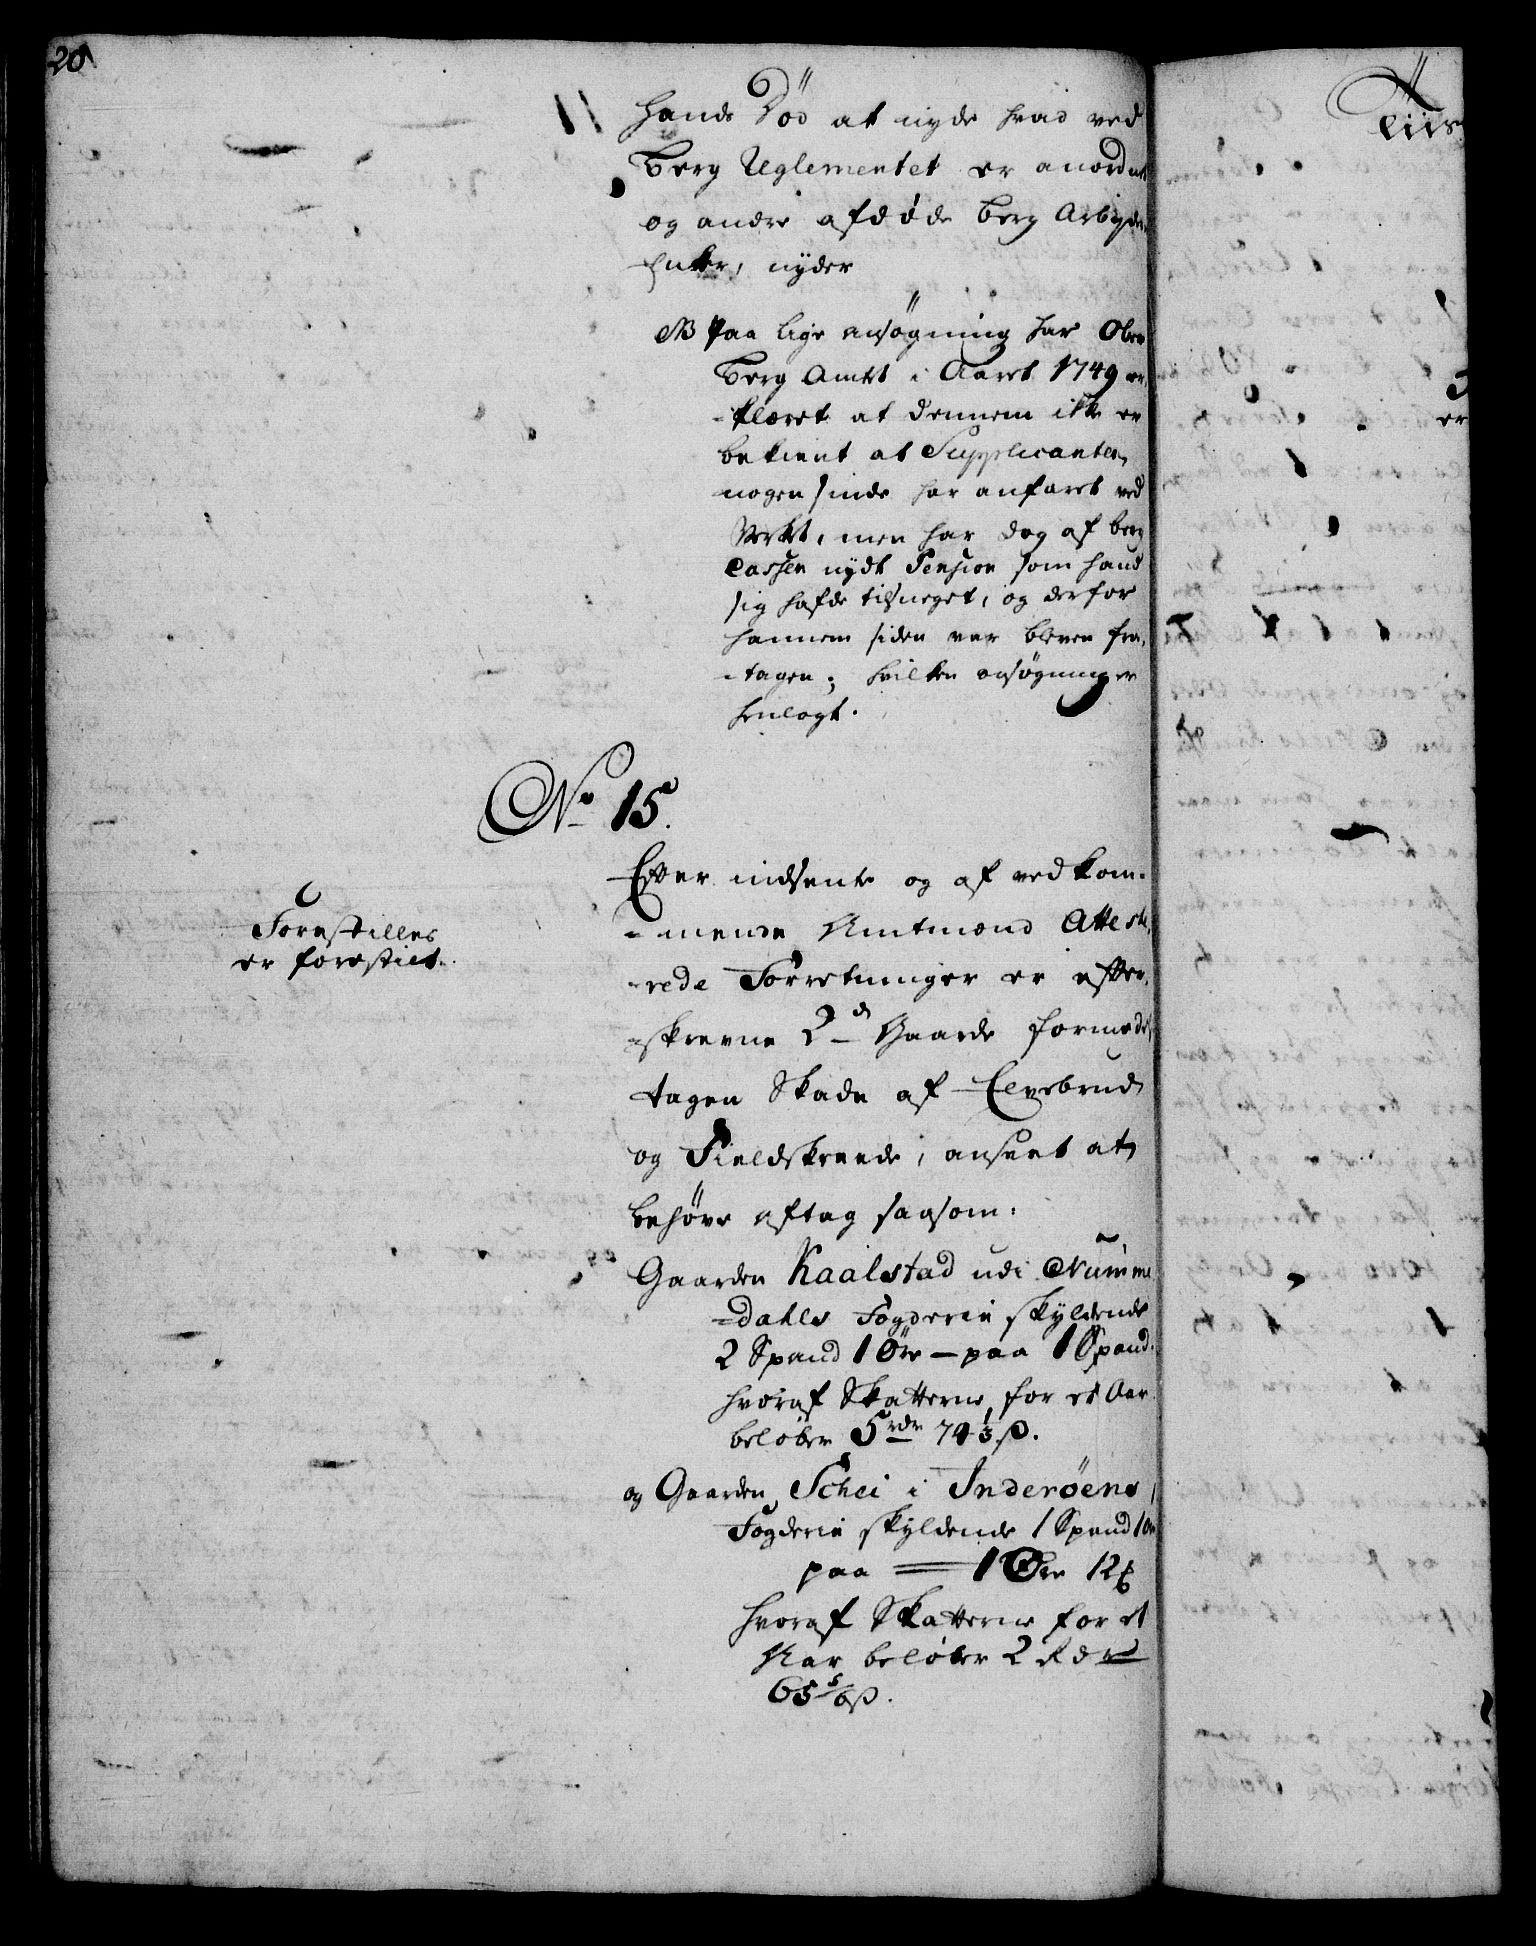 20
hands Død at nyde hvad ved
Berg Reglementet er anordnet
og andre afdøde Berg Arbeyder
Enker, nyder
NB Paa lige ansøgning har Ober
Berg Amtet i Aaret 1749 er-
-klæret at dennem ikke er
bekient at Supplicanten,
nogen sinde har anfaret ved
Verket, men har dog af berg
Cassen nydt Pension som hand
sig hafde tilsneget, og derfor
hannem siden var bleven fra-
-tagen; hvilken ansøgning er
henlagt.
No 15.
Efter indsendte og af vedkom-
-mende Amtmand Atteste-
-rede Forretninger er efter-
-skrevne 2de Gaarde formedelst
tagen Skade af Elvebrud
og Fieldskreede, anseet at
behøve aftag saasom:
Forestilles
er forestilt.
Gaarden Kaalstad udi Numme
-dahls Fogderie skyldende
2 Spand 1 Øre - paa 1 Spand.
hvoraf Skatterne, for et Aar
beløber 5 rdr 74 1/3 ß.
og Gaarden Schei i Inderöens
Fogderie skyldende 1 Spand 1 Øre
paa = 1 Øre 12
hvoraf Skatterne for et
Aar beløber 2 Rdr
65 5/6 ß.